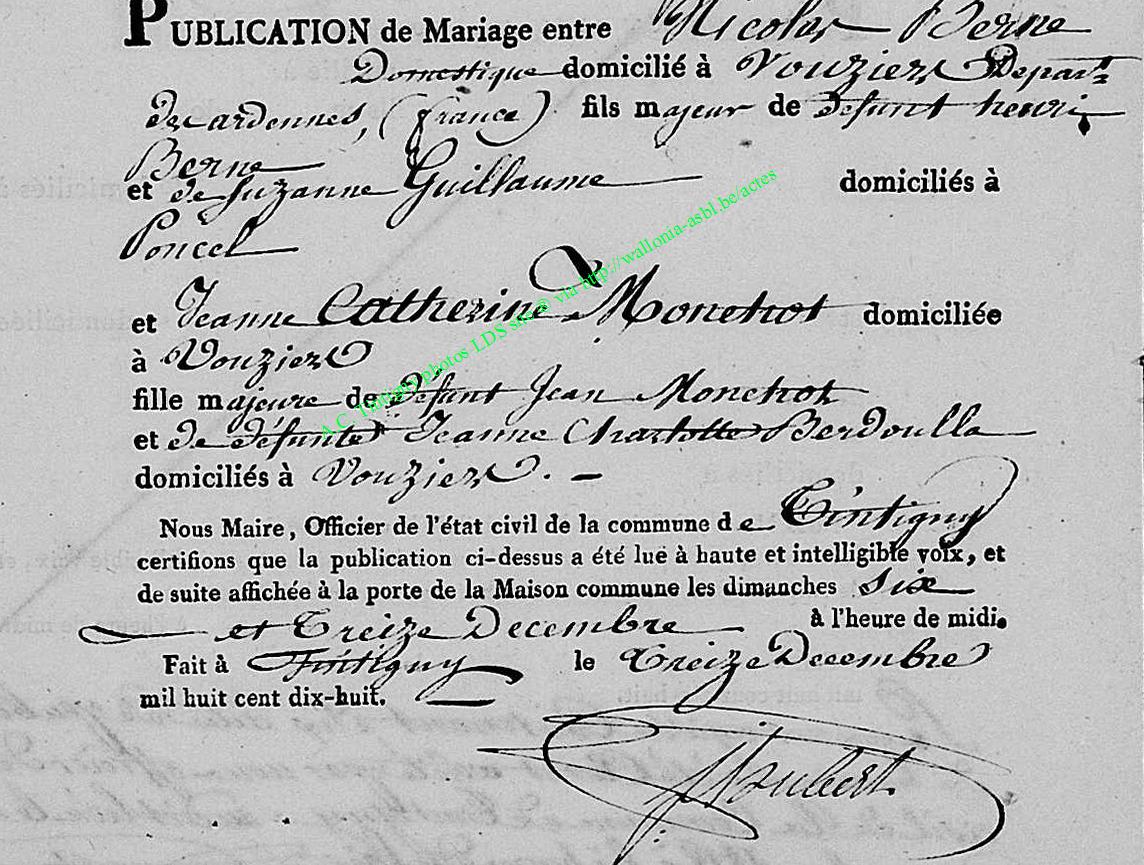 PUBLICATION de Mariage entre Nicolas Berne
Domestique domicilié à Vouziers Depart
des ardennes, (france) fils majeur de défunt henri
Berne
et de Suzanne Guillaume domiciliés à
Poncel
et Jeanne Catherine Monctrot domiciliée
à Vouziers
fille majeure de défunt Jean Monctrot
et de défunte Jeanne Charlotte Berdoulla
domiciliés à Vouziers. —
Nous Maire, Officier de l'état civil de la commune de Tintigny
certifions que la publication ci-dessus a été lue à haute et intelligible voix, et
de suite affichée à la porte de la Maison commune les dimanches six
et treize Decembre à l'heure de midi.
Fait à Tintigny le treize Decembre
mil huit cent dix-huit. —
A.C. Tintigny photos LDS site® via http://wallonia-asbl.be/actes